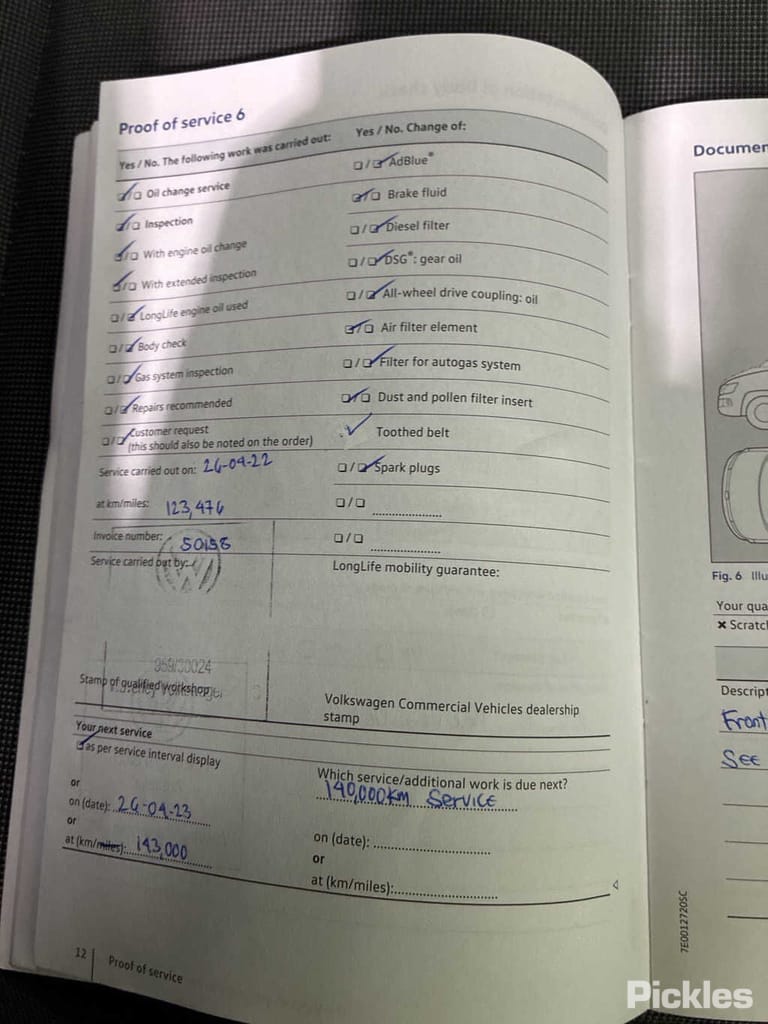 Proof of service 6
Yes / No. The following work was carried out:
☑/☐ Oil change service
☑/☐ Inspection
☑/☐ With engine oil change
☑/☐ With extended inspection
☐/☑ LongLife engine oil used
☐/☑ Body check
☐/☑ Gas system inspection
☐/☑ Repairs recommended
☐/☑ Customer request
(this should also be noted on the order)
Service carried out on: 26-09-22
at km/miles: 123,476
Invoice number: 50158
Service carried out by:
959/30024
Stamp of qualified workshop
Yes / No. Change of:
☐/☑ AdBlue®
☑/☐ Brake fluid
☐/☑ Diesel filter
☐/☑ DSG®: gear oil
☐/☑ All-wheel drive coupling: oil
☑/☐ Air filter element
☐/☑ Filter for autogas system
☑/☐ Dust and pollen filter insert
✓ Toothed belt
☐/☑ Spark plugs
☐/☐
☐/☐
LongLife mobility guarantee:
Volkswagen Commercial Vehicles dealership
stamp
Your next service
☑ as per service interval display
or
on (date): 26-09-23
or
at (km/miles): 143,000
Which service/additional work is due next?
140,000km Service
on (date):
or
at (km/miles):
12 Proof of service
Documen
Fig. 6 Illu
Your qua
× Scratch
Descript
Front
See
7E0012720SC
Pickles